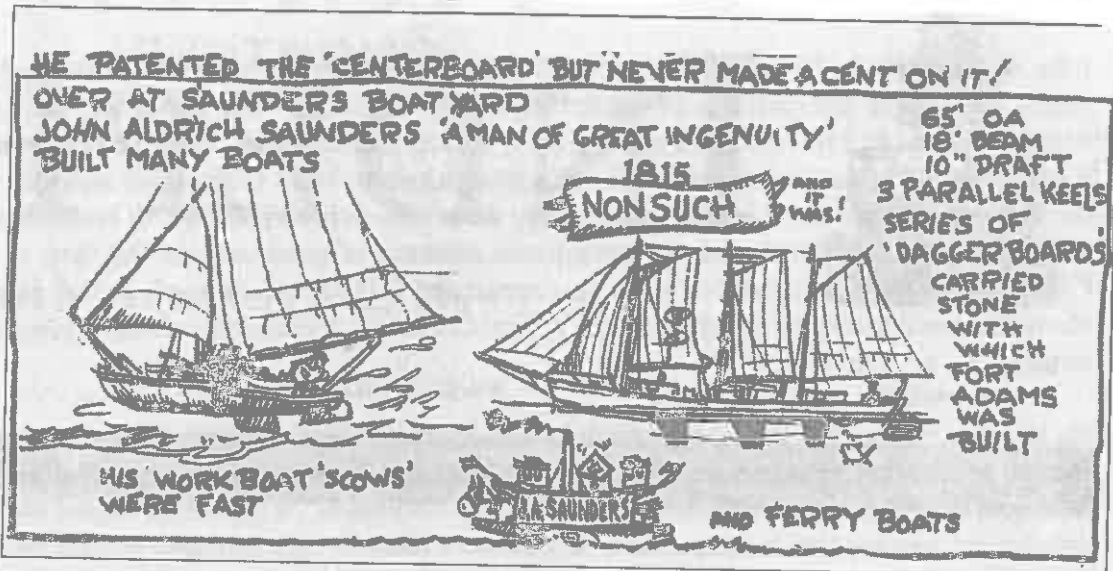 HE PATENTED THE 'CENTERBOARD' BUT NEVER MADE A CENT ON IT!
OVER AT SAUNDERS BOAT YARD
JOHN ALDRICH SAUNDERS 'A MAN OF GREAT INGENUITY'
BUILT MANY BOATS
1815
NONSUCH
AND
IT
WAS!
65' OA
18' BEAM
10" DRAFT
3 PARALLEL KEELS
SERIES OF
'DAGGER BOARDS'
CARRIED
STONE
WITH
WHICH
FORT
ADAMS
WAS
BUILT
HIS 'WORK BOAT' 'SCOWS'
WERE FAST
SAUNDERS
AND FERRY BOATS